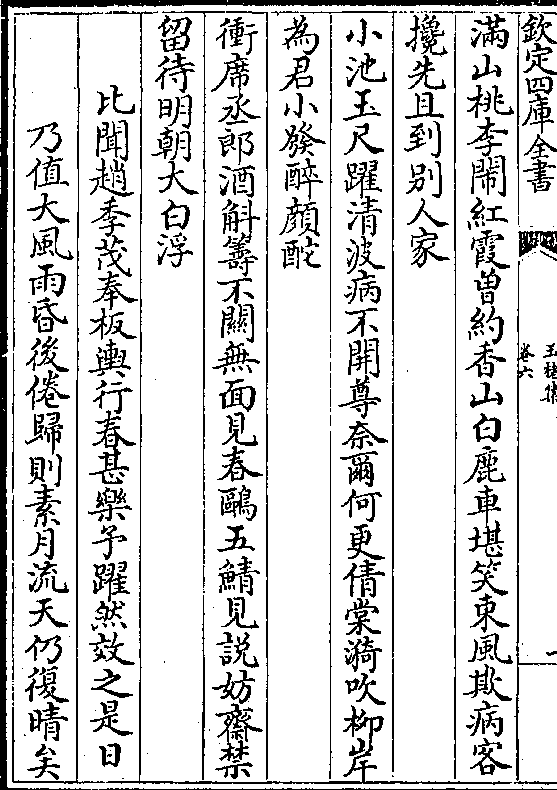 欽定四庫全書
玉楮集
卷六
滿山桃李鬧紅霞曽約香山白鹿車堪笑東風欺病客
攙先且到別人家
小池玉尺躍清波病不開尊奈爾何更倩棠漪吹柳岸
為君小發醉顔酡
衝席丞郎酒斛籌不關無面見春鷗五鯖見説妨齋禁
留待明朝大白浮
比聞趙季茂奉板輿行春甚樂予躍然效之是日
乃值大風雨昏後倦歸則素月流天仍復晴矣